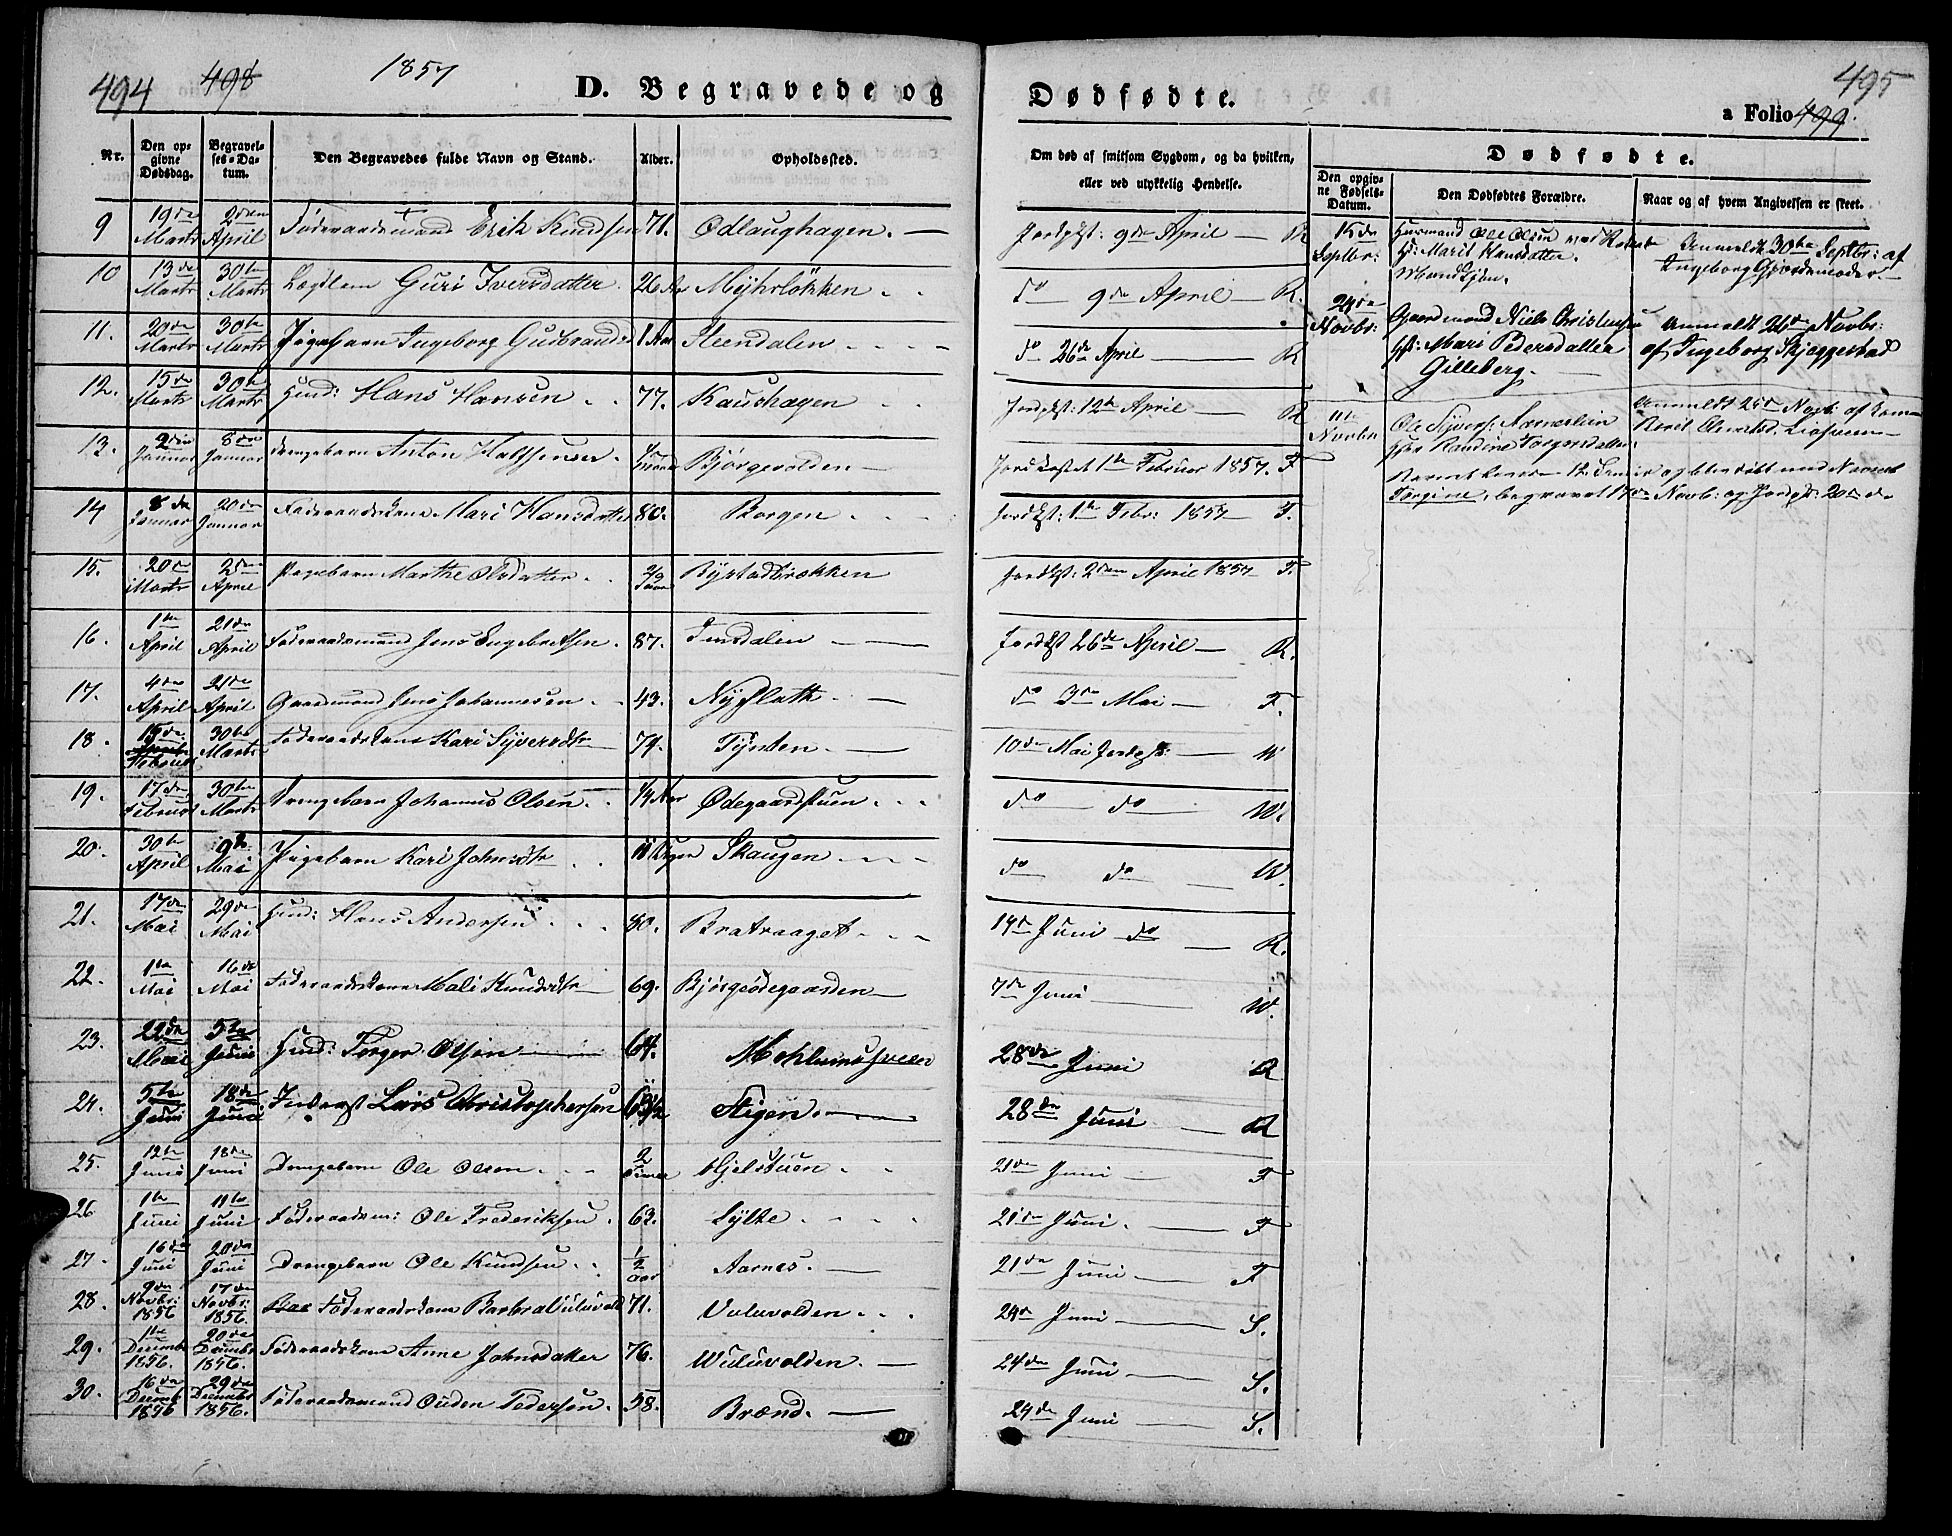 494 498 1857 D. Begravede og
Nr. Den opgivne Dødsdag. Begravelses-Datum. Den Begravedes fulde Navn og Stand. Alder. Opholdssted.
9 19de Marts 2den April Føderaadsmand Erik Knudsen 71. Odlaughagen. —
10 13de Marts 30te Marts Guri Iversdatter 26 Aar Myhrløkken
11. 20de Marts 30te Marts Pigebarn Ingeborg Gudbrandsd 1 Aar Steendalen
12. 15de Marts 30te Marts Husmd: Hans Hansen 77. Kaushagen
13. 2den Januar 8de Januar Drengebarn Anton Bjørgevolden —
14 8de Januar 20de Januar Føderaadskone Mari Hansdatter 80. Borgen
15. 20de Marts 2den April Pigebarn Marthe Olsdatter Bystadbrækken
16. 1te April 21de April Føderaadsmand Jens Engebretsen. 87. Jensdalen —
17. 4de April 21de April Gaardmand Jens Johannesen 43. Nyflath —
18. 15de Februar 30te Marts Føderaadskone Kari Syversdtr 79. Tynten. —
19. 17de Februar 30te Marts Drengebarn Johannes Olsen 1/4 Aar Ødegaardstuen
20. 30te April 9de Mai Pigebarn Kari Johnsdtr Uger Skaugen
21. 17de Mai 29de Mai Husmd: Hans Andersen 80. Bratraaget
22. 1te Mai 16de Mai Føderaadskone Mali Knudsdtr 69. Bjørgeødegaarden —
23. 22de Mai 5te Juni Husmd: Torger Olsen 64.
24. 5te Juni 18de Juni Inderst Lars Christophersen Stigen. —
25. 12te Juni 18de Juni Drengebarn Ole Olsen 2 Timer Gjelstuen
26 1te Juni 11te Juni Føderaadsm: Ole Frederiksen. 63. Sylte
27. 16de Juni 20de Juni Drengebarn Ole Knudsen 1/2 Aar Aarnes. —
28. 9de Novbr: 1856 17de Novbr: 1856. Føderaadskone Barbra Uuluvold 71. Uuluvolden
29. 1te Decembr 1856. 20de Decembr 1856. Føderaadskone Anne Johnsdatter 76. Wuluvolden. —
30. 16de Decembr 1856 29de Decembr 1856. Føderaadsmand Ouden Pedersen. 58. Brænd. —
Dødfødte. a Folio 499. 495
Om død af smitsom Sygdom, og da hvilken, eller ved ulykkelig Hendelse.
Dødfødte.
Den opgivne Fødsels-Datum. Den Dødfødtes Forældre. Naar og af hvem Angivelsen er skeet.
Jordkst: 9de April — R
do — 9de April — R.
do 26de April — R
Jordkst: 12te April — R
Jordkastet 1te Februar 1857. F
Jordkst: 1te Febr: 1857 — F.
Jordkst: 2den April 1857 — F.
Jordkst 26de April — R.
do 3de Mai — F.
10de Mai Jordkst: — W
do do — W.
do do — W.
14de Juni do — R.
7de Juni — W.
28de Juni R
28de Juni — R
21de Juni — F
21de Juni. — F
21de Juni — F
24de Juni — S.
24de Juni — S.
24de Juni — S.
15de Septbr: Husmand Ole Olsen
H: Marit Hansdatter.
Anmeldt 30te Septbr: af
Ingeborg Gjordemoder. —
24de Novbr: Gaardmand Niels Christensen
H: Mari Pedersdatter
Gilleberg. —
Anmeldt 26de Novbr:
af Ingeborg Skjeggestad
11te Novbr Ole Syvers:
H: Randine Torgersdatter.
Anmeldt 25de Novb: af
Torgine, begravet 17de Novb: og Jordkst: 20de do